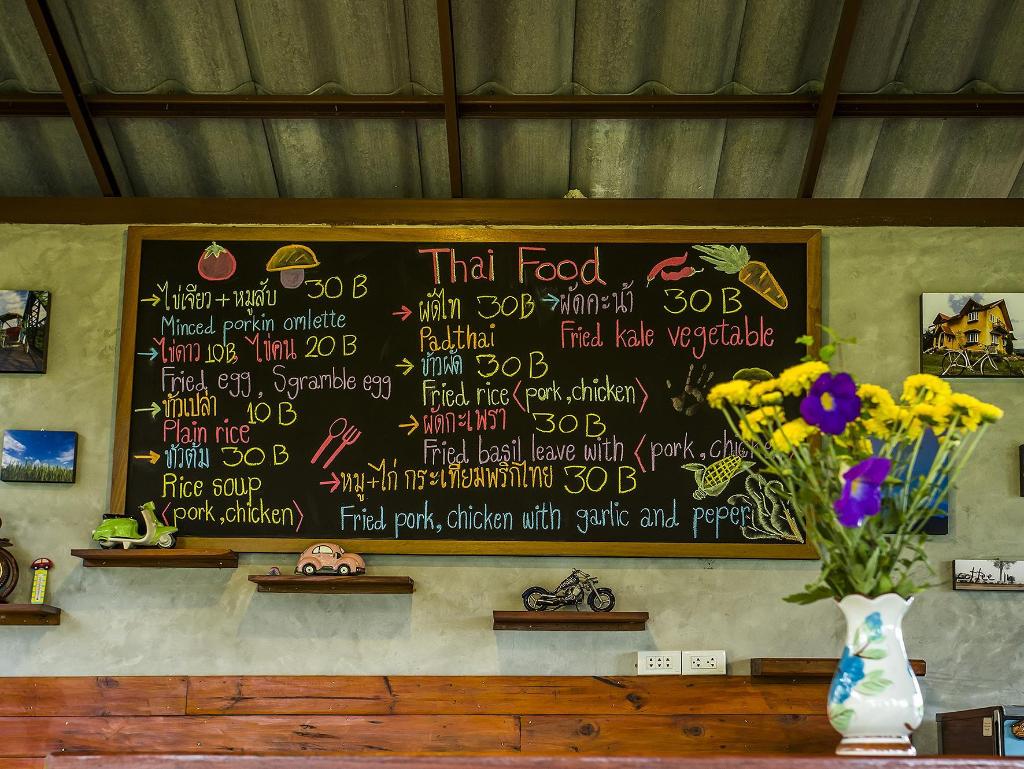 Thai Food
→ไข่เจียว+หมูสับ 30 B
Minced porkin omlette
→ไข่ดาว 10B, ไข่คน 20 B
Fried egg, Sgramble egg
→ข้าวเปล่า 10 B
Plain rice
→ข้าวต้ม 30 B
Rice soup
<pork,chicken>
→ผัดไท 30B
Padthai
→ข้าวผัด 30B
Fried rice <pork,chicken>
→ผัดกะเพรา 30B
Fried basil leave with <pork,
→หมู+ไก่ กระเทียมพริกไทย 30 B
Fried pork, chicken with garlic and peper
→ผัดคะน้า 30 B
Fried kale vegetable